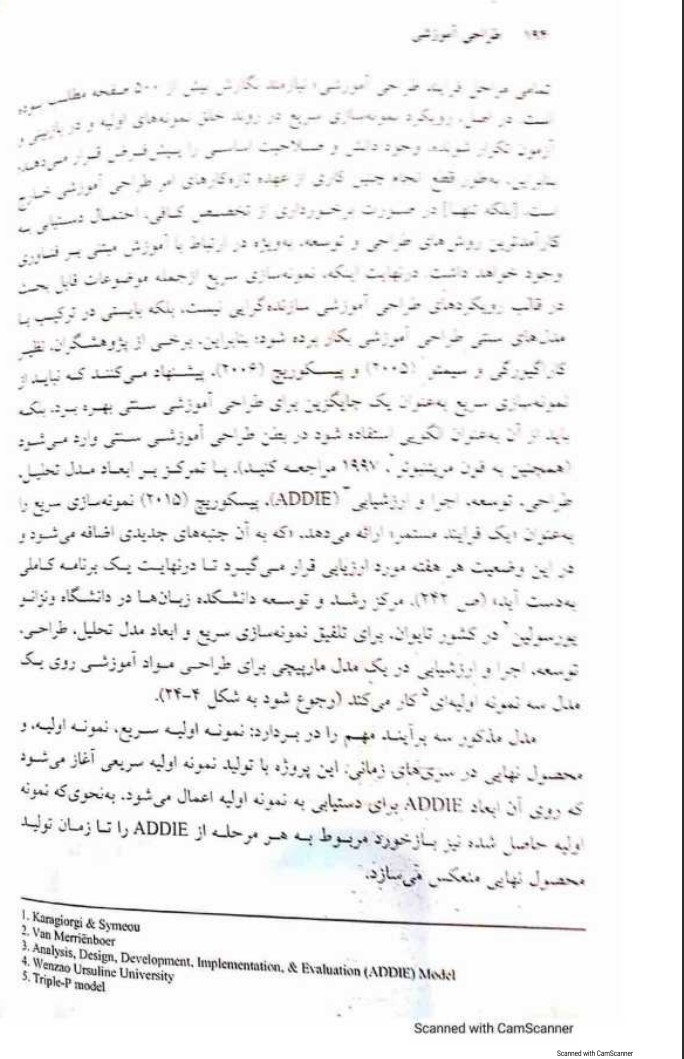 ۱۹۴ طراحی آموزشی
تمامی مراحل فرایند طراحی آموزشی» نیازمند نگارش بیش از ۵۰۰ صفحه مطلب بوده
است. در اصل، رویکرد نمونه‌سازی سریع در روند خلق نمونه‌های اولیه و در بازبینی و
آزمون تکرار شونده، وجود دانش و صلاحیت اساسی را پیش‌فرض قرار می‌دهد.
بنابراین، به‌طور قطع انجام چنین کاری از عهده تازه‌کارهای امر طراحی آموزشی خارج
است. [بلکه تنها] در صورت برخورداری از تخصص کافی، احتمال دستیابی به
کارآمدترین روش‌های طراحی و توسعه، به‌ویژه در ارتباط با آموزش مبتنی بر فناوری
وجود خواهد داشت. درنهایت اینکه، نمونه‌سازی سریع ازجمله موضوعات قابل بحث
در قالب رویکردهای طراحی آموزشی سازنده‌گرایی نیست، بلکه بایستی در ترکیب با
مدل‌های سنتی طراحی آموزشی بکار برده شود؛ بنابراین، برخی از پژوهشگران، نظیر
کاراگیورگی و سیمئو (۲۰۰۵)۱ و پیسکوریچ (۲۰۰۶)، پیشنهاد می‌کنند که نباید از
نمونه‌سازی سریع به‌عنوان یک جایگزین برای طراحی آموزشی سنتی بهره برد، بلکه
باید از آن به‌عنوان الگویی استفاده شود در بطن طراحی آموزشی سنتی وارد می‌شود
(همچنین به فون مرینبوئر۲، ۱۹۹۷ مراجعه کنید). با تمرکز بر ابعاد مدل تحلیل،
طراحی، توسعه، اجرا و ارزشیابی۳ (ADDIE)، پیسکوریچ (۲۰۱۵) نمونه‌سازی سریع را
به‌عنوان «یک فرایند مستمر» ارائه می‌دهد، «که به آن جنبه‌های جدیدی اضافه می‌شود و
در این وضعیت هر هفته مورد ارزیابی قرار می‌گیرد تا درنهایت یک برنامه کاملی
به‌دست آید» (ص ۲۴۲). مرکز رشد و توسعه دانشکده زبان‌ها در دانشگاه ونزائو
یورسولین۴ در کشور تایوان، برای تلفیق نمونه‌سازی سریع و ابعاد مدل تحلیل، طراحی،
توسعه، اجرا و ارزشیابی در یک مدل مارپیچی برای طراحی مواد آموزشی روی یک
مدل سه نمونه اولیه‌ای۵ کار می‌کند (رجوع شود به شکل ۴-۲۴).
مدل مذکور سه برآیند مهم را در بردارد: نمونه اولیه سریع، نمونه اولیه، و
محصول نهایی در سری‌های زمانی. این پروژه با تولید نمونه اولیه سریعی آغاز می‌شود
که روی آن ابعاد ADDIE برای دستیابی به نمونه اولیه اعمال می‌شود. به‌نحوی‌که نمونه
اولیه حاصل شده نیز بازخورد مربوط به هر مرحله از ADDIE را تا زمان تولید
محصول نهایی منعکس می‌سازد.
1. Karagiorgi & Symeou
2. Van Merriënboer
3. Analysis, Design, Development, Implementation, & Evaluation (ADDIE) Model
4. Wenzao Ursuline University
5. Triple-P model
Scanned with CamScanner
Scanned with CamScanner